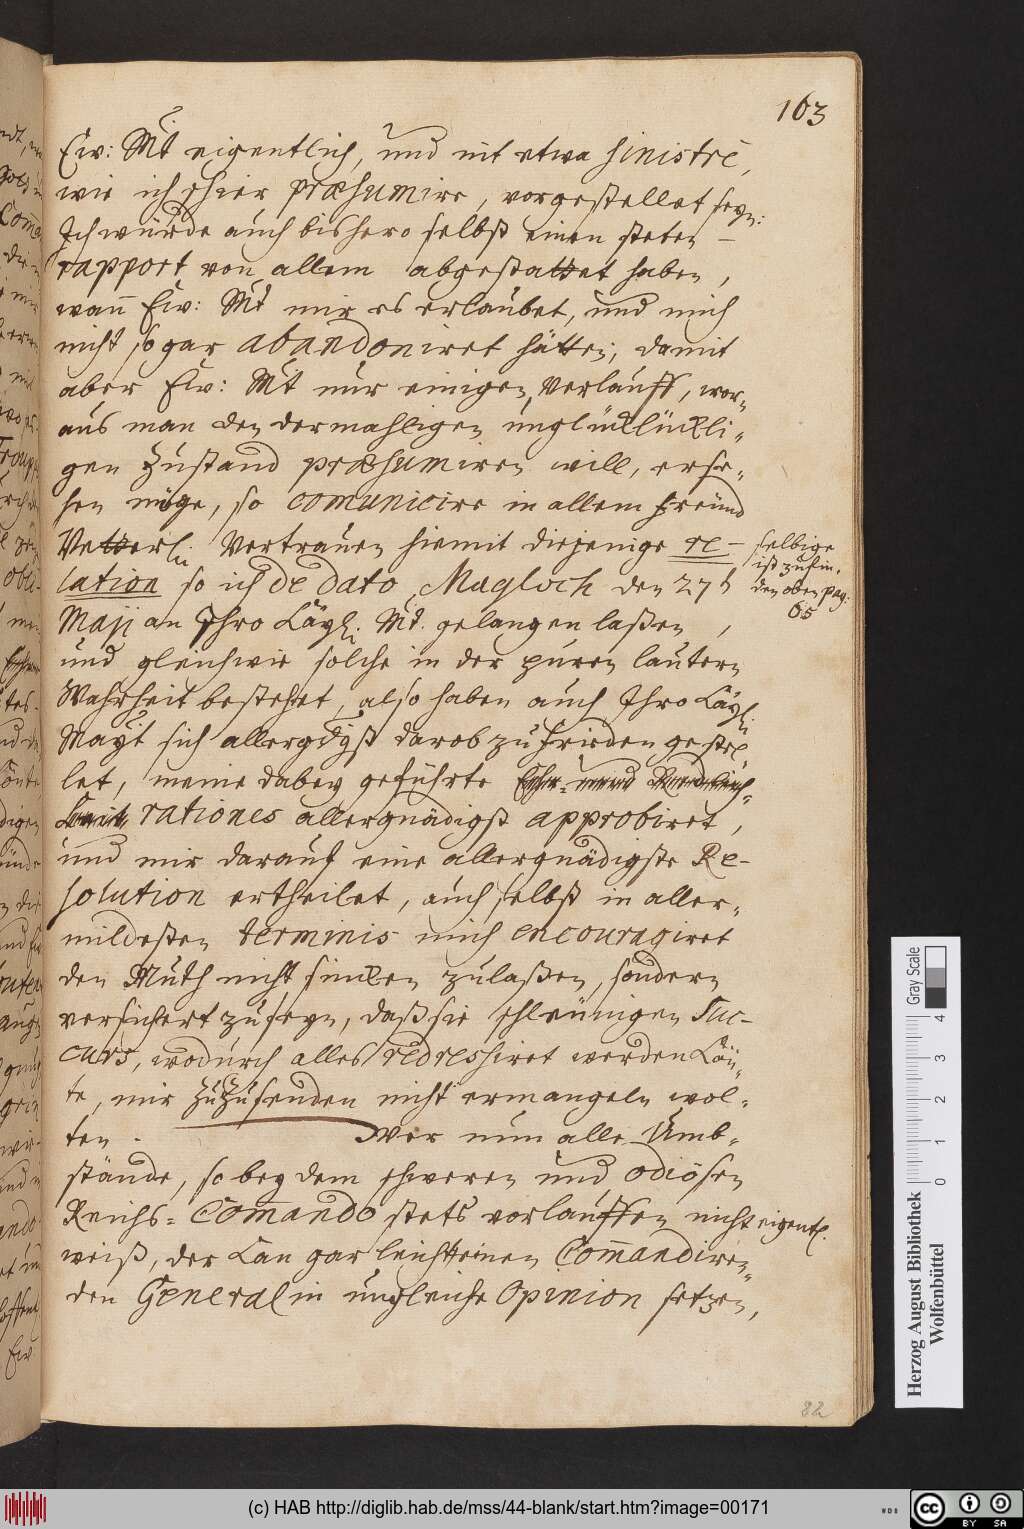 163
Ew: Mt eigentlich, und nit etwa sinistrè,
wie ich schier præsumire, vorgestellet seyn:
Ich würde auch bishero selbst einen steten –
rapport von allem abgestattet haben,
wan̄ Ew: Mt mir es erlaubet, und mich
nicht so gar abandoniret hätten, damit
aber Ew: Mt nur einigen Verlauff, wor¬
aus man den dermahligen unglücklückli¬
gen Zustand præsumiren will, erse¬
hen möge, so comunicire in allem freünd
Vetterl: Vertrauen hiemit diejenige re–
lation so ich de dato Magloch den 27t
Maji an Ihro Käyl: Mt. gelangen laßen,
und gleichwie solche in der puren lautern
Wahrheit bestehet, also haben auch Ihro Käyl:
Mayt sich allergdgst darob zufrieden gestel
let, meine dabey geführte
rationes allergnädigst approbiret,
und mir darauf eine allergnädigste Re–
solution ertheilet, auch selbst in aller¬
mildesten terminis mich encouragiret
den Muth nicht sincken zulaßen, sondern
versichert zuseyn, daß sie schleünigen Suc–
curs, wodurch alles redressiret werden kön¬
te, mir zuZusenden nicht ermangeln wol¬
ten. Wer nun alle Umb¬
stände, so bey dem schweren und odiösen
Reichs= Com̄ando stets vorlauffen nicht eigentl.
weiß, der kan gar leicht einen Com̄andiren¬
den General in ungleiche Opinion setzen,
selbige
ist zufin¬
den oben pag:
65
82
Herzog August Bibliothek
Wolfenbüttel
Gray Scale
0 1 2 3 4
(c) HAB http://diglib.hab.de/mss/44-blank/start.htm?image=00171
WDB
cc BY SA